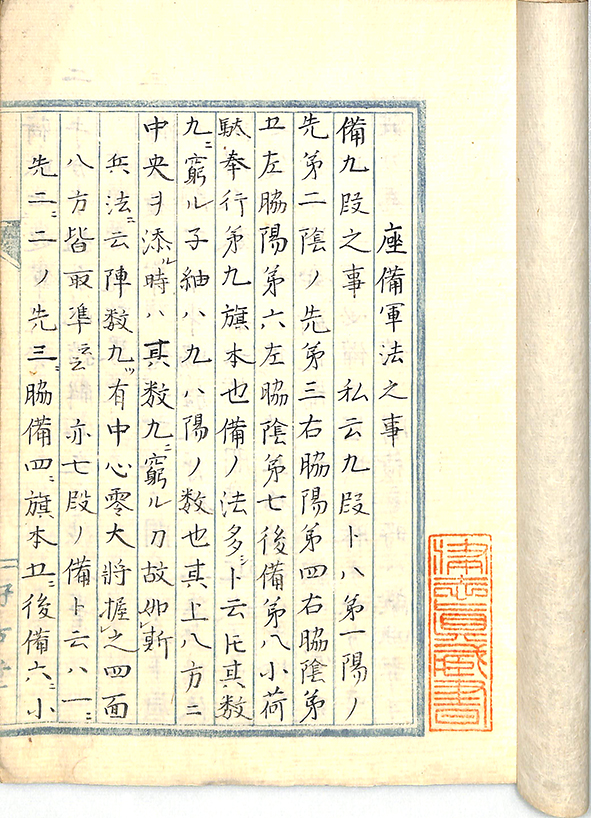 座備軍法之事
備九段之事 私云九段ト八第一陽ノ
先第二陰ノ先第三右脇陽第四右脇陰第
五左脇陽第六左脇陰第七後備第八小荷
駄奉行第九旗本也備ノ法多シト云𪜈其数
九ニ窮ル子細ハ九ハ陽ノ数也其上八方ニ
中央ヲ添ル時ハ其数九ニ窮ル刀故如斯
兵法ニ云陣数九ツ有中心零大将握之四面
八方皆取準云云亦七段ノ備ト云ハ一ニ
先二ニ二ノ先三ニ脇備四ニ旗本五ニ後備六ニ小